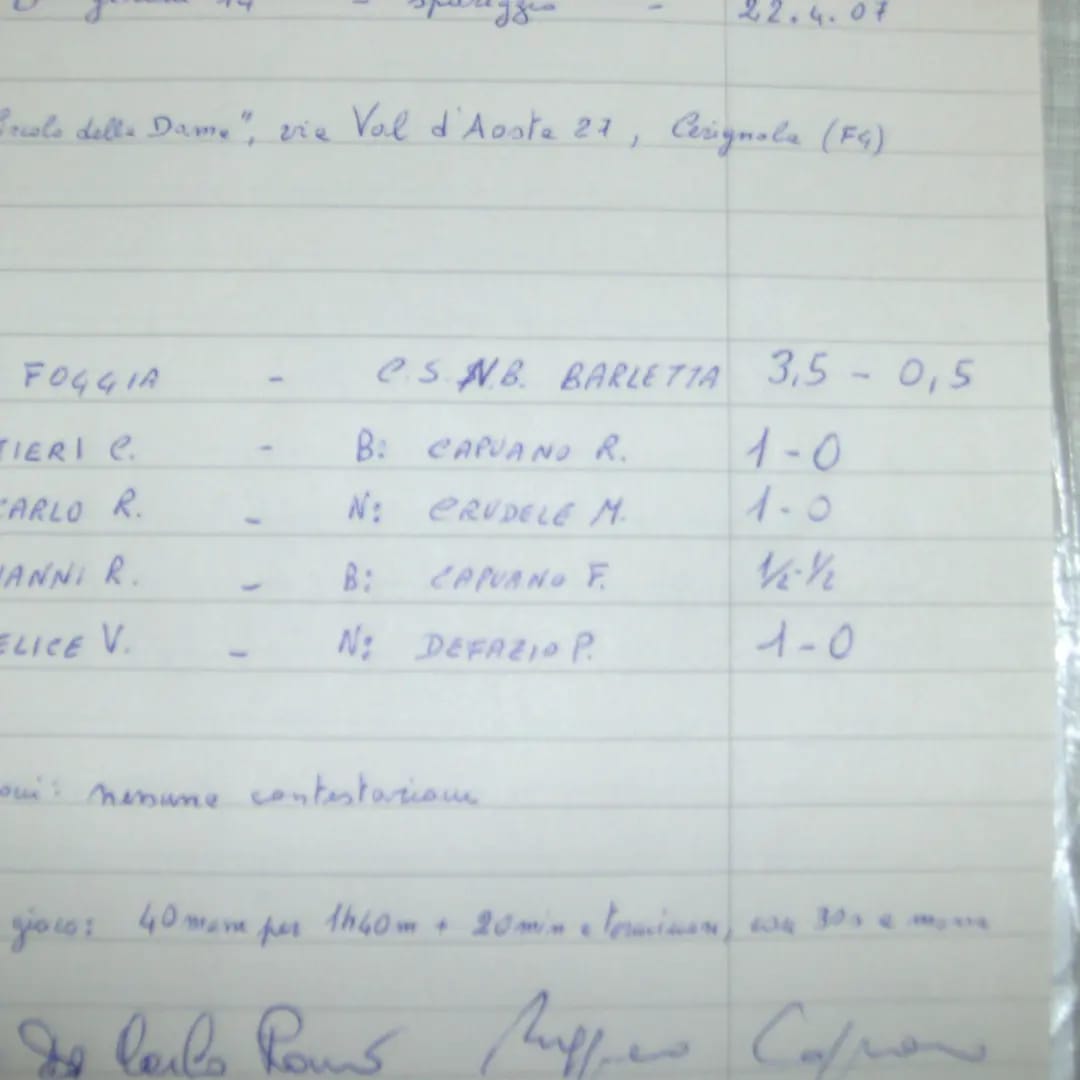 girone 14 - spareggio - 22.4.07
Circolo della Dama", via Val d'Aosta 27, Cerignola (FG)
FOGGIA - C.S.N.B. BARLETTA 3,5 - 0,5
TIERI C. - B: CAPUANO R. 1-0
CARLO R. - N: CRUDELE M. 1-0
IANNI R. - B: CAPUANO F. ½-½
ELICE V. - N: DEFAZIO P. 1-0
oni: nessuna contestazione
gioco: 40 mosse per 1h40m + 20min a terminare, con 30s a mossa
De Carlo Ruggiero Capuano